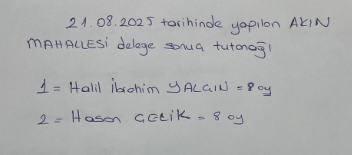 21.08.2025 tarihinde yapılan AKIN
MAHALLESİ delege sonuç tutanağı
1 = Halil İbrahim YALÇIN = 8 oy
2 = Hasan ÇELİK = 8 oy